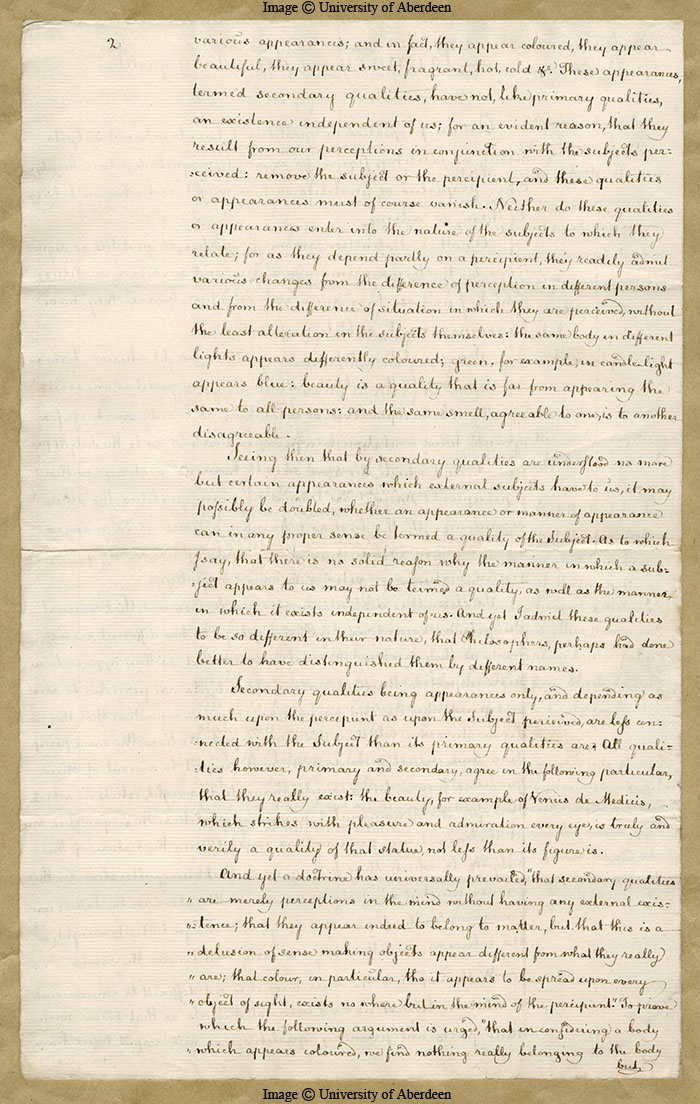 Image © University of Aberdeen
2
various appearances; and in fact, they appear coloured, they appear
beautiful, they appear sweet, fragrant, hot, cold &c. These appearances,
termed secondary qualities, have not, like primary qualities,
an existence independent of us; for an evident reason, that they
result from our perceptions in conjunction with the subjects per-
-ceived: remove the subject or the percipient, and these qualities
or appearances must of course vanish. Neither do these qualities
or appearances enter into the nature of the subjects to which they
relate; for as they depend partly on a percipient, they readily admit
various changes from the difference of perception in different persons
and from the difference of situation in which they are perceived, without
the least alteration in the subjects themselves: the same body in different
lights appears differently coloured; green, for example, in candle-light
appears blue: beauty is a quality that is far from appearing the
same to all persons: and the same smell, agreeable to one, is to another
disagreeable.
Seeing then that by secondary qualities are understood no more
but certain appearances which external subjects have to us, it may
possibly be doubted, whether an appearance or manner of appearance
can in any proper sense be termed a quality of the Subject. As to which
I say, that there is no solid reason why the manner in which a sub-
-ject appears to us may not be termed a quality, as well as the manner
in which it exists independent of us. And yet I admit these qualities
to be so different in their nature, that Philosophers, perhaps had done
better to have distinguished them by different names.
Secondary qualities being appearances only, and depending as
much upon the percipient as upon the Subject perceived, are less con-
-nected with the Subject than its primary qualities are. All quali-
-ties however, primary and secondary, agree in the following particular,
that they really exist: the beauty, for example of Venus de Medicis,
which strikes with pleasure and admiration every eye, is truly and
verily a quality of that statue, not less than its figure is.
And yet a doctrine has universally prevailed, "that secondary qualities
" are merely perceptions in the mind without having any external exis-
"-tence; that they appear indeed to belong to matter, but that this is a
" delusion of sense making objects appear different from what they really
" are; that colour, in particular, tho it appears to be spread upon every
" object of sight, exists no where but in the mind of the percipient." To prove
which the following argument is urged, "that in considering a body
" which appears coloured, we find nothing really belonging to the body
but
Image © University of Aberdeen